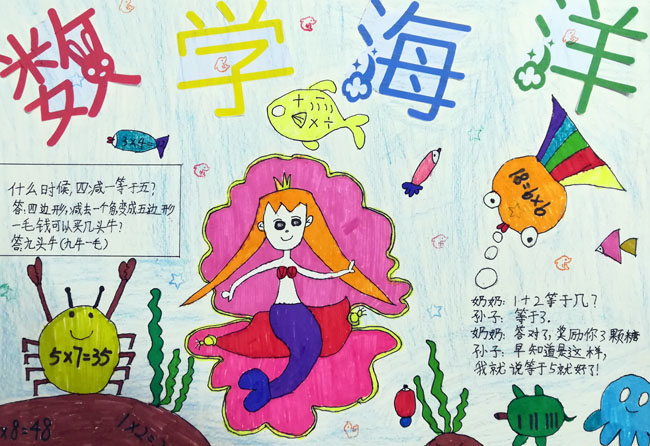 数学海洋
+
×÷
3×4=
什么时候,四减一等于五?
答:四边形,减去一个角变成五边形
一毛钱可以买几头牛?
答:九头牛(九牛一毛)
18=6×6
奶奶:1+2等于几?
孙子:等于3.
奶奶:答对了,奖励你3颗糖
孙子:早知道是这样,
我就说等于5就好了!
5×7=35
×8=48
1×2=2